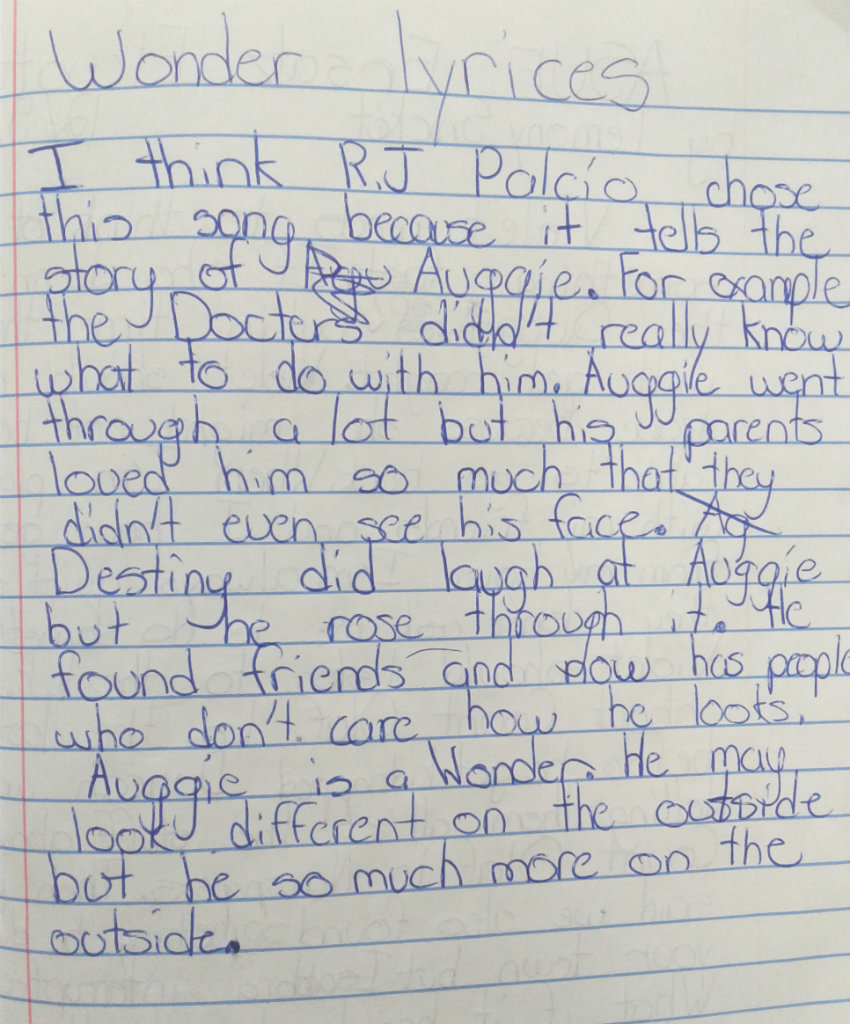 Wonder lyrices
I think R.J Palcio chose
this song because it tells the
story of Auggie. For example
the Docters didn't really know
what to do with him. Auggie went
through a lot but his parents
loved him so much that they
didn't even see his face. Ag
Destiny did laugh at Auggie
but he rose through it. He
found friends and now has people
who don't care how he loots.
Auggie is a Wonder. He may
look different on the outside
but he so much more on the
outside.